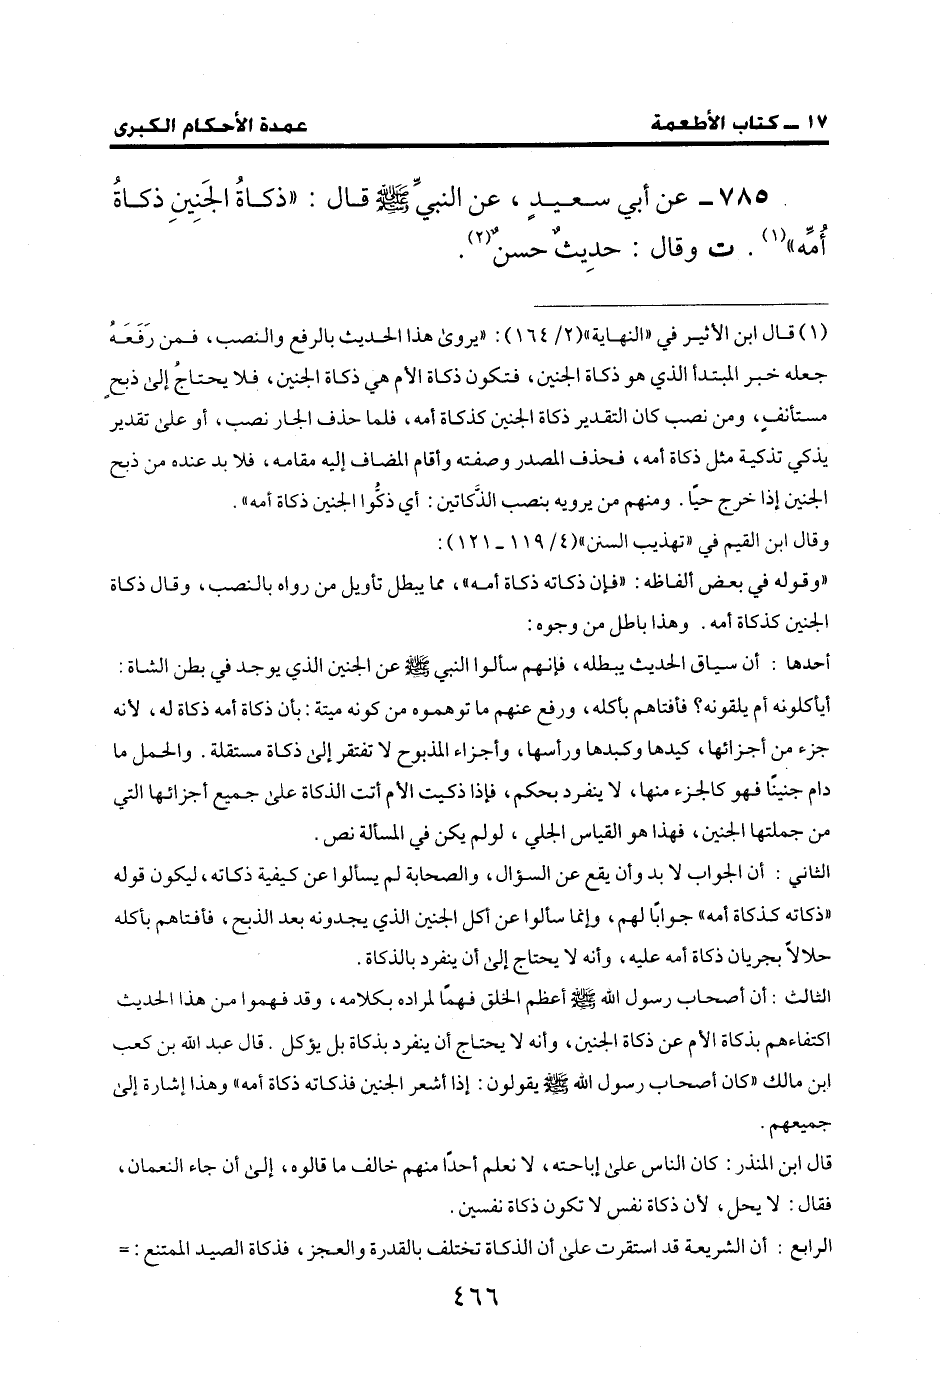 ١٧ ـ كتاب الأطعمة
عمدة الأحكام الكبرى
٧٨٥ ـ عن أبي سعيدٍ ، عن النبيِّ ﷺ قال : «ذكاةُ الجَنِينِ ذكاةُ
أُمِّه»(١) . ت وقال : حديثٌ حسنٌ(٢).
(١) قال ابن الأثير في «النهاية»(٢/ ١٦٤): «يروىٰ هذا الحديث بالرفع والنصب، فمن رَفَعَهُ
جعله خبر المبتدأ الذي هو ذكاة الجنين، فتكون ذكاة الأم هي ذكاة الجنين، فلا يحتاجُ إلىٰ ذبحٍ
مستأنفٍ، ومن نصب كان التقدير ذكاة الجنين كذكاة أمه، فلما حذف الجار نصب، أو علىٰ تقدير
يذكي تذكية مثل ذكاة أمه، فحذف المصدر وصفته وأقام المضاف إليه مقامه، فلا بد عنده من ذبح
الجنين إذا خرج حيًا. ومنهم من يرويه بنصب الذَّكاتين: أي ذكُّوا الجنين ذكاة أمه».
وقال ابن القيم في «تهذيب السنن»(٤/ ١١٩ ـ ١٢١):
«وقوله في بعض ألفاظه: «فإن ذكاته ذكاة أمه»، مما يبطل تأويل من رواه بالنصب، وقال ذكاة
الجنين كذكاة أمه. وهذا باطل من وجوه:
أحدها : أن سياق الحديث يبطله، فإنهم سألوا النبي ﷺ عن الجنين الذي يوجد في بطن الشاة:
أيأكلونه أم يلقونه؟ فأفتاهم بأكله، ورفع عنهم ما توهموه من كونه ميتة: بأن ذكاة أمه ذكاة له، لأنه
جزء من أجزائها، كيدها وكبدها ورأسها، وأجزاء المذبوح لا تفتقر إلىٰ ذكاة مستقلة. والحمل ما
دام جنينًا فهو كالجزء منها، لا ينفرد بحكم، فإذا ذكيت الأم أتت الذكاة علىٰ جميع أجزائها التي
من جملتها الجنين، فهذا هو القياس الجلي ، لو لم يكن في المسألة نص.
الثاني : أن الجواب لا بد وأن يقع عن السؤال، والصحابة لم يسألوا عن كيفية ذكاته، ليكون قوله
«ذكاته كذكاة أمه» جوابًا لهم، وإنما سألوا عن أكل الجنين الذي يجدونه بعد الذبح، فأفتاهم بأكله
حلالاً بجريان ذكاة أمه عليه، وأنه لا يحتاج إلىٰ أن ينفرد بالذكاة.
الثالث : أن أصحاب رسول الله ﷺ أعظم الخلق فهمًا لمراده بكلامه، وقد فهموا من هذا الحديث
اكتفاءهم بذكاة الأم عن ذكاة الجنين، وأنه لا يحتاج أن ينفرد بذكاة بل يؤكل. قال عبد الله بن كعب
ابن مالك «كان أصحاب رسول الله ﷺ يقولون: إذا أشعر الجنين فذكاته ذكاة أمه» وهذا إشارة إلىٰ
جميعهم.
قال ابن المنذر: كان الناس علىٰ إباحته، لا نعلم أحدًا منهم خالف ما قالوه، إلىٰ أن جاء النعمان،
فقال: لا يحل، لأن ذكاة نفس لا تكون ذكاة نفسين.
الرابع : أن الشريعة قد استقرت علىٰ أن الذكاة تختلف بالقدرة والعجز، فذكاة الصيد الممتنع: =
٤٦٦